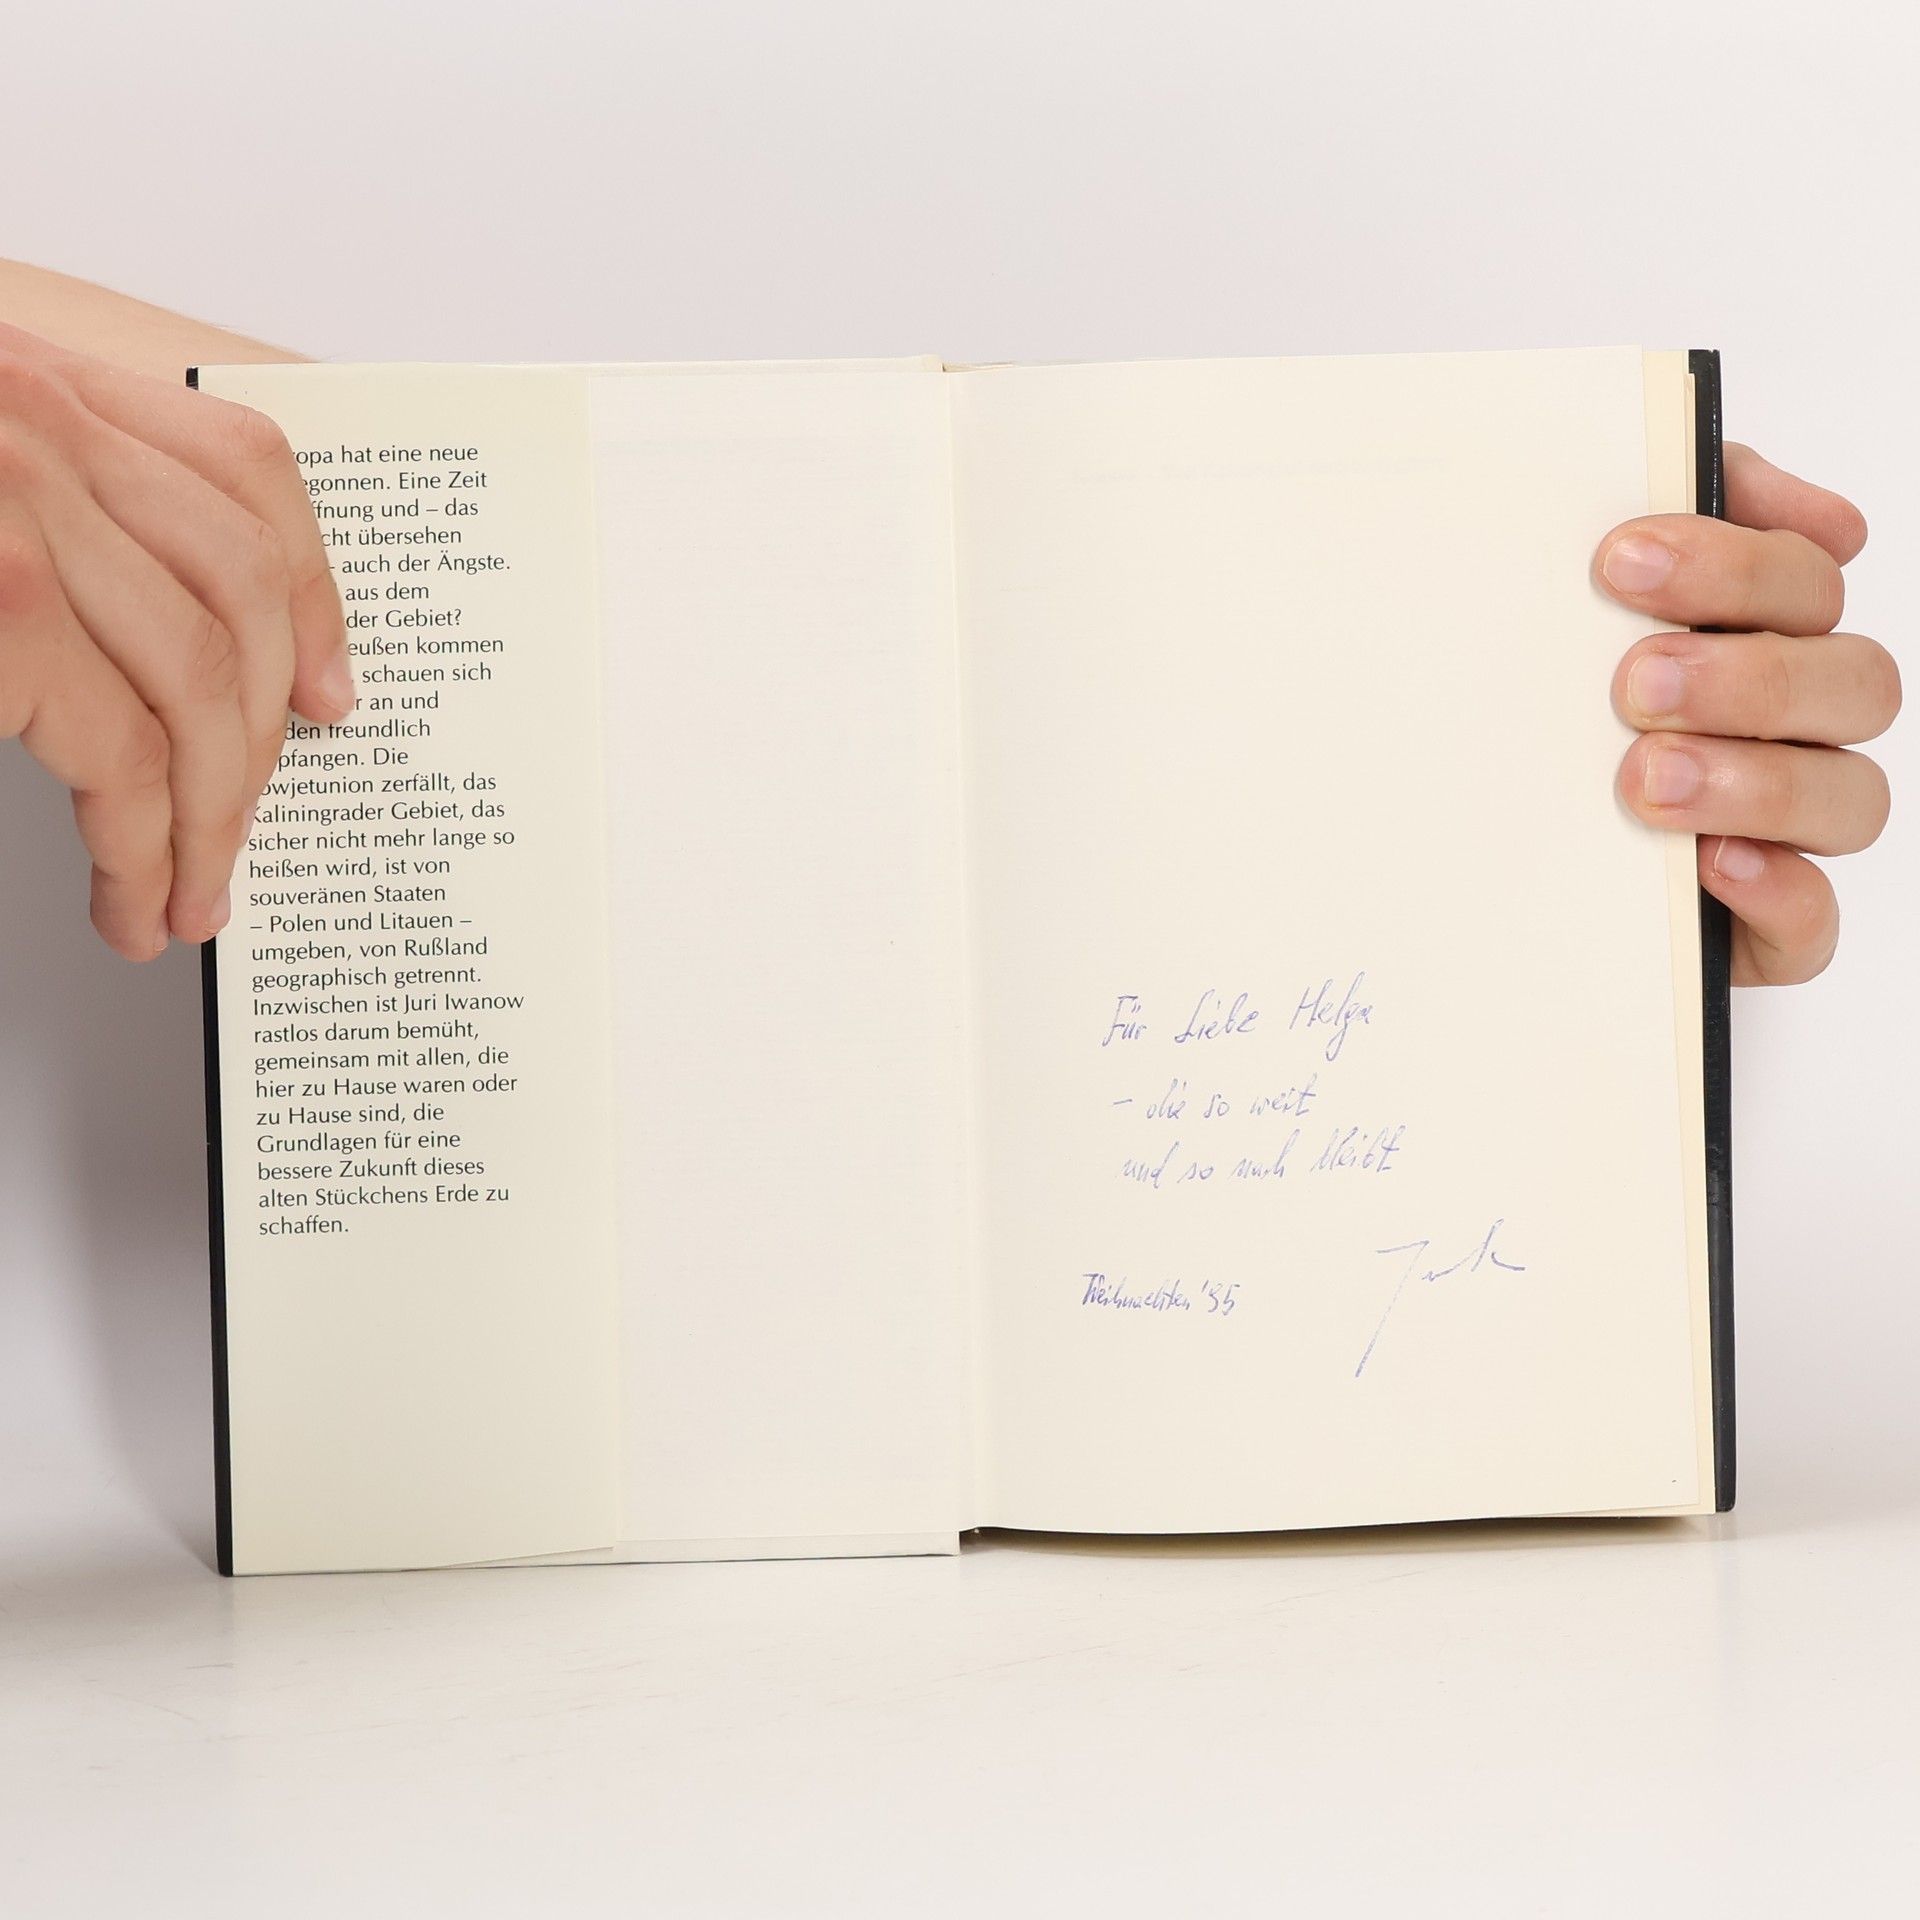 ropa hat eine neue
egonnen. Eine Zeit
ffnung und – das
cht übersehen
– auch der Ängste.
aus dem
der Gebiet?
eußen kommen
, schauen sich
r an und
den freundlich
pfangen. Die
owjetunion zerfällt, das
Kaliningrader Gebiet, das
sicher nicht mehr lange so
heißen wird, ist von
souveränen Staaten
– Polen und Litauen –
umgeben, von Rußland
geographisch getrennt.
Inzwischen ist Juri Iwanow
rastlos darum bemüht,
gemeinsam mit allen, die
hier zu Hause waren oder
zu Hause sind, die
Grundlagen für eine
bessere Zukunft dieses
alten Stückchens Erde zu
schaffen.
Für Liebe Helga
– die so weit
und so nah bleibt
Weihnachten '95